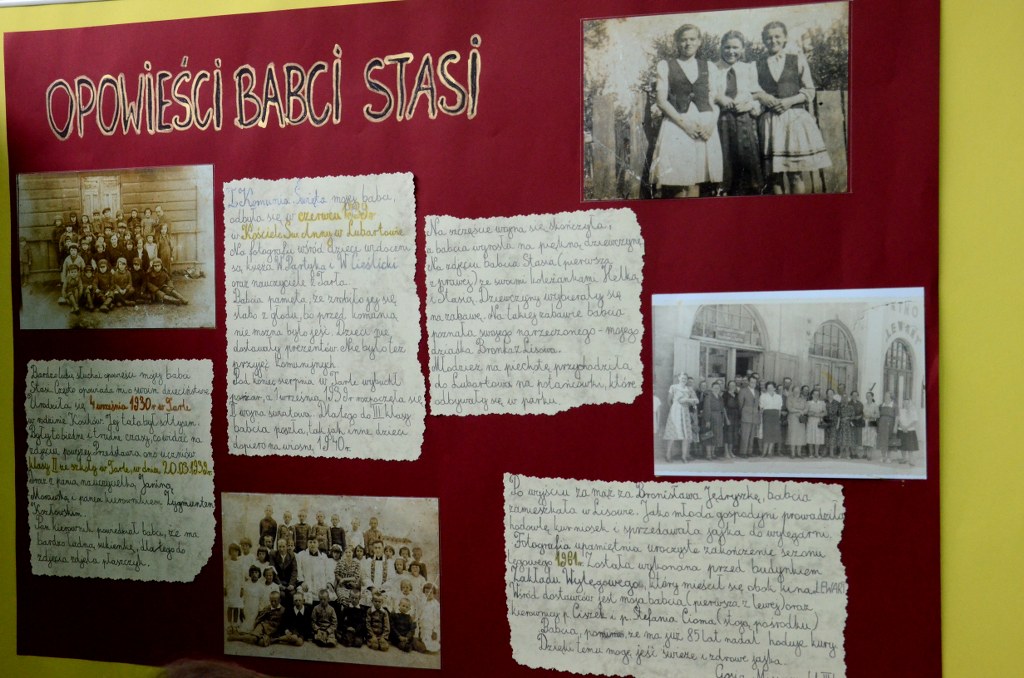 OPOWIEŚCI BABCI STASI
Bardzo lubię słuchać opowieści mojej babci
Stasi. Często opowiada mi o swoim dzieciństwie.
Urodziła się 4 września 1930 r. w Tarle
w rodzinie Kozłów. Jej tata był sołtysem.
Były to biedne i trudne czasy, co widać na
zdjęciu powyżej. Przedstawia ono uczniów
klasy II ze szkoły w Tarle, w dniu 20.03.1939r.
wraz z panią nauczycielką Janiną
i panem kierownikiem Zygmuntem
Pan kierownik powiedział babci, że ma
bardzo ładną sukienkę, dlatego do
zdjęcia zdjęła płaszczyk.
I Komunia Święta mojej babci,
odbyła się w czerwcu
w Kościele Św. Anny w Lubartowie
Na fotografii wśród dzieci widoczni
są księża W. Pastyka i W. Cieślicki
oraz nauczyciele z Tarła.
Babcia pamięta, że zrobiło jej się
słabo z głodu, bo przed komunią
nie można było jeść. Dzieci nie
dostawały prezentów. Nie było też
przyjęć komunijnych.
Pod koniec sierpnia w Tarle wybuchł
pożar, a 1 września 1939 r rozpoczęła się
II wojna światowa. Dlatego do III klasy
babcia poszła, tak jak inne dzieci
dopiero na wiosnę 1940r.
Na szczęście wojna się skończyła,
a babcia wyrosła na piękną dziewczynę.
Na zdjęciu babcia Stasia (pierwsza
z prawej) ze swoimi koleżankami Helką
i Stasią. Dziewczyny wybierały się
na zabawę. Na takiej zabawie babcia
poznała swojego narzeczonego - mojego
dziadka Bronka z Lisowa.
Młodzież na piechotę przychodziła
do Lubartowa na potańcówki, które
odbywały się w parku.
Po wyjściu za mąż za Bronisława Jędryszkę, babcia
zamieszkała w Lisowie. Jako młoda gospodyni prowadziła
hodowlę kurniosek i sprzedawała jajka do wylęgarni.
Fotografia upamiętnia uroczyste zakończenie sezonu
lęgowego 1961r. Została wykonana przed budynkiem
Zakładu Wylęgowego, który mieścił się obok kina LEWART.
Wśród dostawców jest moja babcia (pierwsza z lewej) oraz
kierownicy p. Ciszek i p. Stefania Cioma (stoją pośrodku)
Babcia, pomimo, że ma już 85 lat nadal hoduje kury.
Dzięki temu mogę jeść świeże i zdrowe jajka.